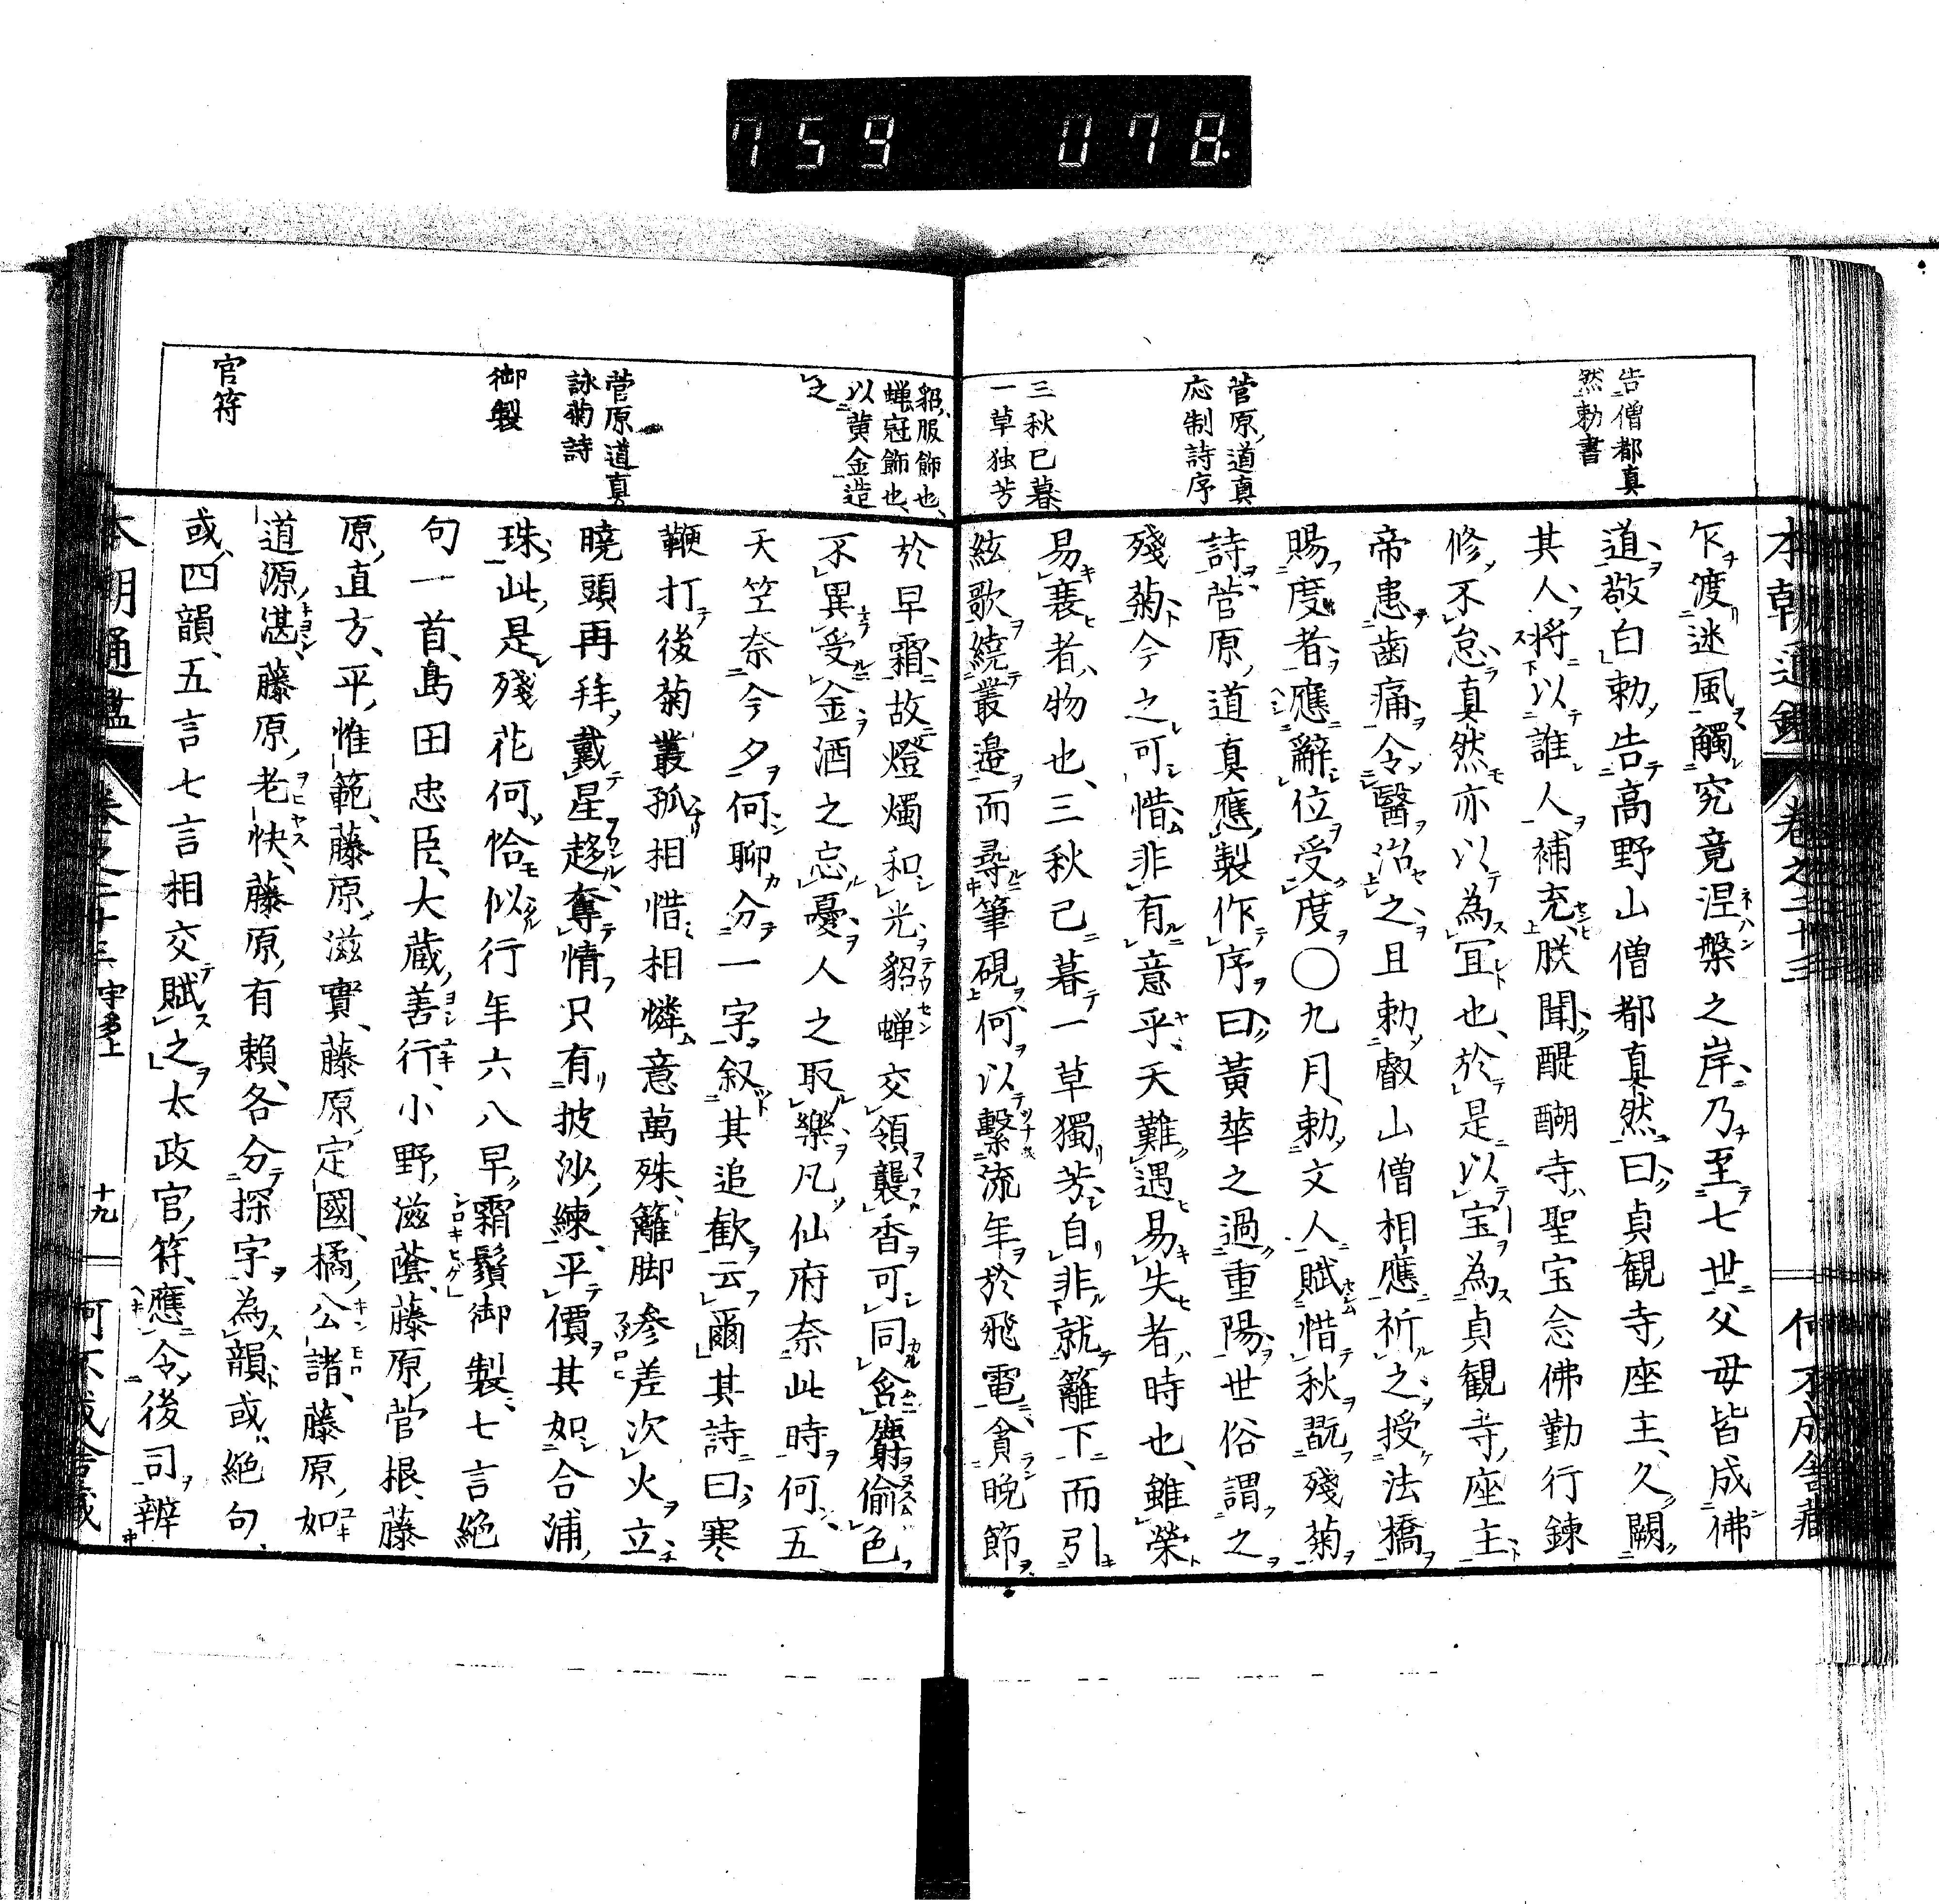 759 078.
告僧都真
然勅書
菅原道真
応制詩序
三秋已暮
一草独芳
本朝通鑑 卷之二十三 何不成舍藏
乍渡迷風觸究竟涅槃之岸乃至七世父母皆成佛
道敬白勅告高野山僧都真然曰貞観寺座主久闕
其人将以誰人補充朕聞醍醐寺聖宝念佛勤行鍊
修不怠真然亦以為宜也於是以宝為貞観寺座主
帝患齒痛令醫治之且勅叡山僧相應祈之授法橋
賜度者應辭位受度〇九月勅文人賦惜秋翫殘菊
詩菅原道真應製作序曰黃華之過重陽世俗謂之
殘菊今之可惜非有意乎天難遇易失者時也雖榮
易衰者物也三秋已暮一草獨芳自非就籬下而引
絃歌繞叢邉而尋筆硯何以繫流年於飛電貪晩節
貂服飾也
蝉冠飾也
以黄金造
之
菅原道真
詠菊詩
御製
官符
於早霜故燈燭和光貂蝉交領襲香可同偷色
不異受金酒之忘憂人之取樂凡仙府奈此時何五
天竺奈今夕何聊分一字叙其追歓云爾其詩曰寒
鞭打後菊叢孤相惜相憐意萬殊籬脚參差次火立
曉頭再拜戴星趍奪情只有披沙練平價其如合浦
珠此是殘花何恰似行年六八早霜鬚御製七言絶
句一首島田忠臣大蔵善行小野滋蔭藤原菅根藤
原直方平惟範藤原滋實藤原定國橘公諸藤原如
道源湛藤原老快藤原有頼各分探字為韻或絶句
或四韻五言七言相交賦之太政官符應令後司辨
本朝通鑑 宇多上 十九 何不成舍藏